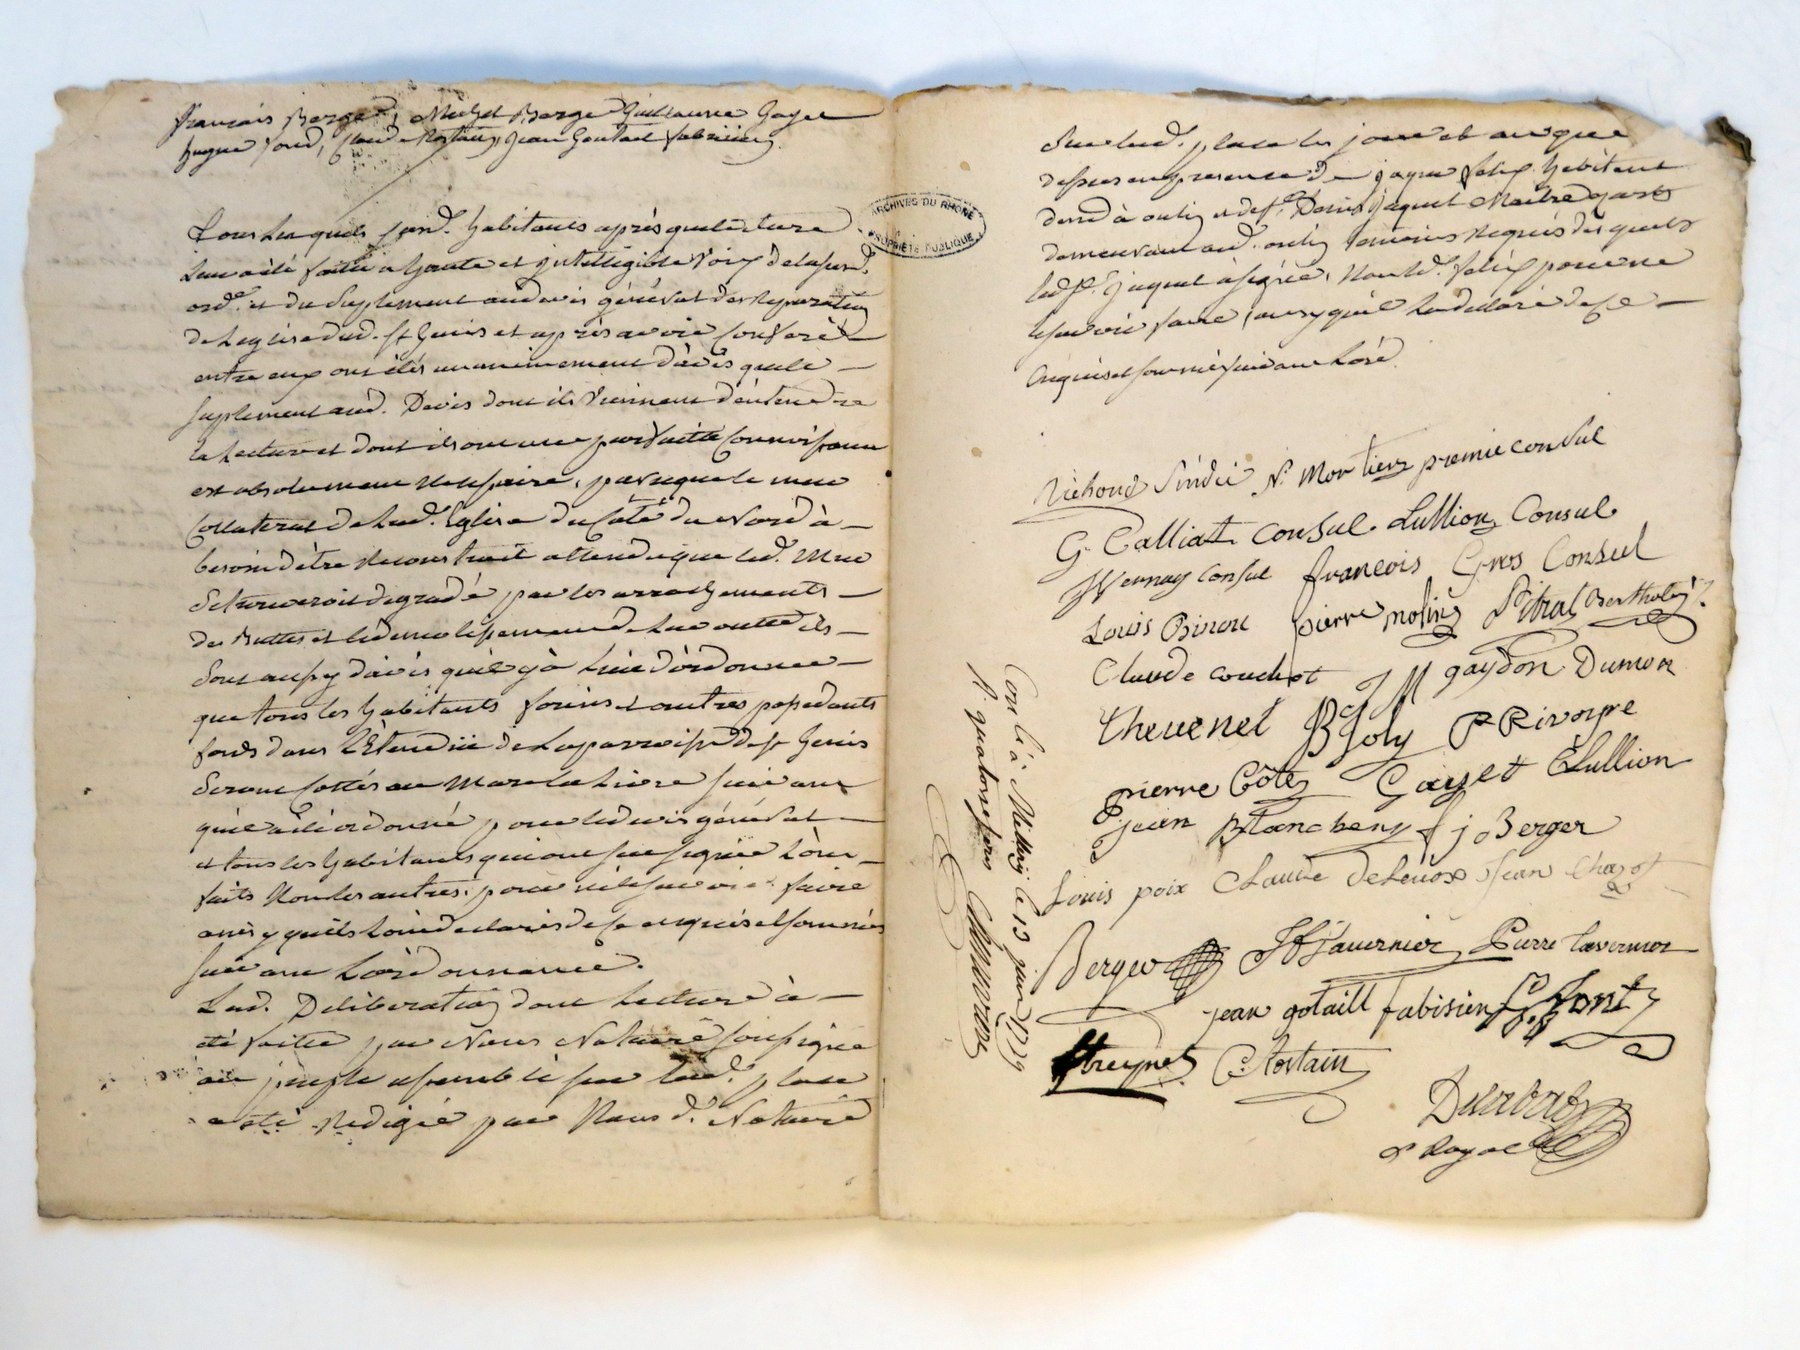 francois Berger, Michel Berge Guillaume Gayet
hugue fond, Claude Rostain, Jean Goutail fabricien
Tous lesquels susd. habitants apres que lecture
leur a été faitte a haute et jntelligible voix de lasusd.
ord.e et du Suplement audevis général des reparations
de Leglise dud. St Genis et après avoir Conferé
entre eux ont étés unanimement d'avis que le
suplement aud. Devis dont ils viennent d'entendre
la lecture et dont ils ont une parfaitte Connoissance
est absolument necessaire, parceque le mur
Collateral de Lad. Eglise du Coté du Nord à
besoin d'être reconstruit attendu que led. Mur
Se trouveroit degradé par les arrachements
des Buttes et
Sont aussy d'avis qu'il y à lieu d'ordonner
que tous les habitants forins et autres possedants
fonds dans l'Etendüe de La parroisse de St Genis
Seront cottés au Marc la Livre suivant
qu'il a été ordonné pour led. devis général
et tous les habitants qui ont sceu signer L'ont
faits Non les autres, pour ne le sçavoir faire
ainsy qu'ils L'ont declarés de ce enquis et sommés
suivant L'ordonnance.
Lad. Deliberation dont Lecture à
été faitte par Nous Notaire soussigné
au peuple assemblé sur lad. place
a eté redigée par Nous d. Notaire
Sur lad. place les jour et an que
dessus en presence de jaque felix habitant
dud à oulin et de s.r Denis jaquet Maitre
demeurant aud. oulin temoins requis desquels
led s.r jaquet à signé, Non led. felix pour ne
le sçavoir faire ainsy qu'il L'a declaré de ce
enquis et sommé suivant Lord.
Richond Sindic N. Mortier premie consul
G. Calliat Consul Lullion Consul
JVernay Consul francois Gros Consul
Louis Binou pierre molins Pitrat Bertholey
Claude couchot JM gaydon Dumon
Thevenet B Joly P Rivoyre
pierre Côte Gayet Lullion
jean Blancheny jo Berger
Louis poix Claude Deleuox Jean Chazot
Berger JB Tavernier Pierre tavernier
jean gotaill fabisien font
Streynet C. Rostain
Durbat
Royac
Con lé à Millery le 13 juin 1739
R. quatorze sous
ARCHIVES DU RHÔNE
PROPRIÉTÉ PUBLIQUE